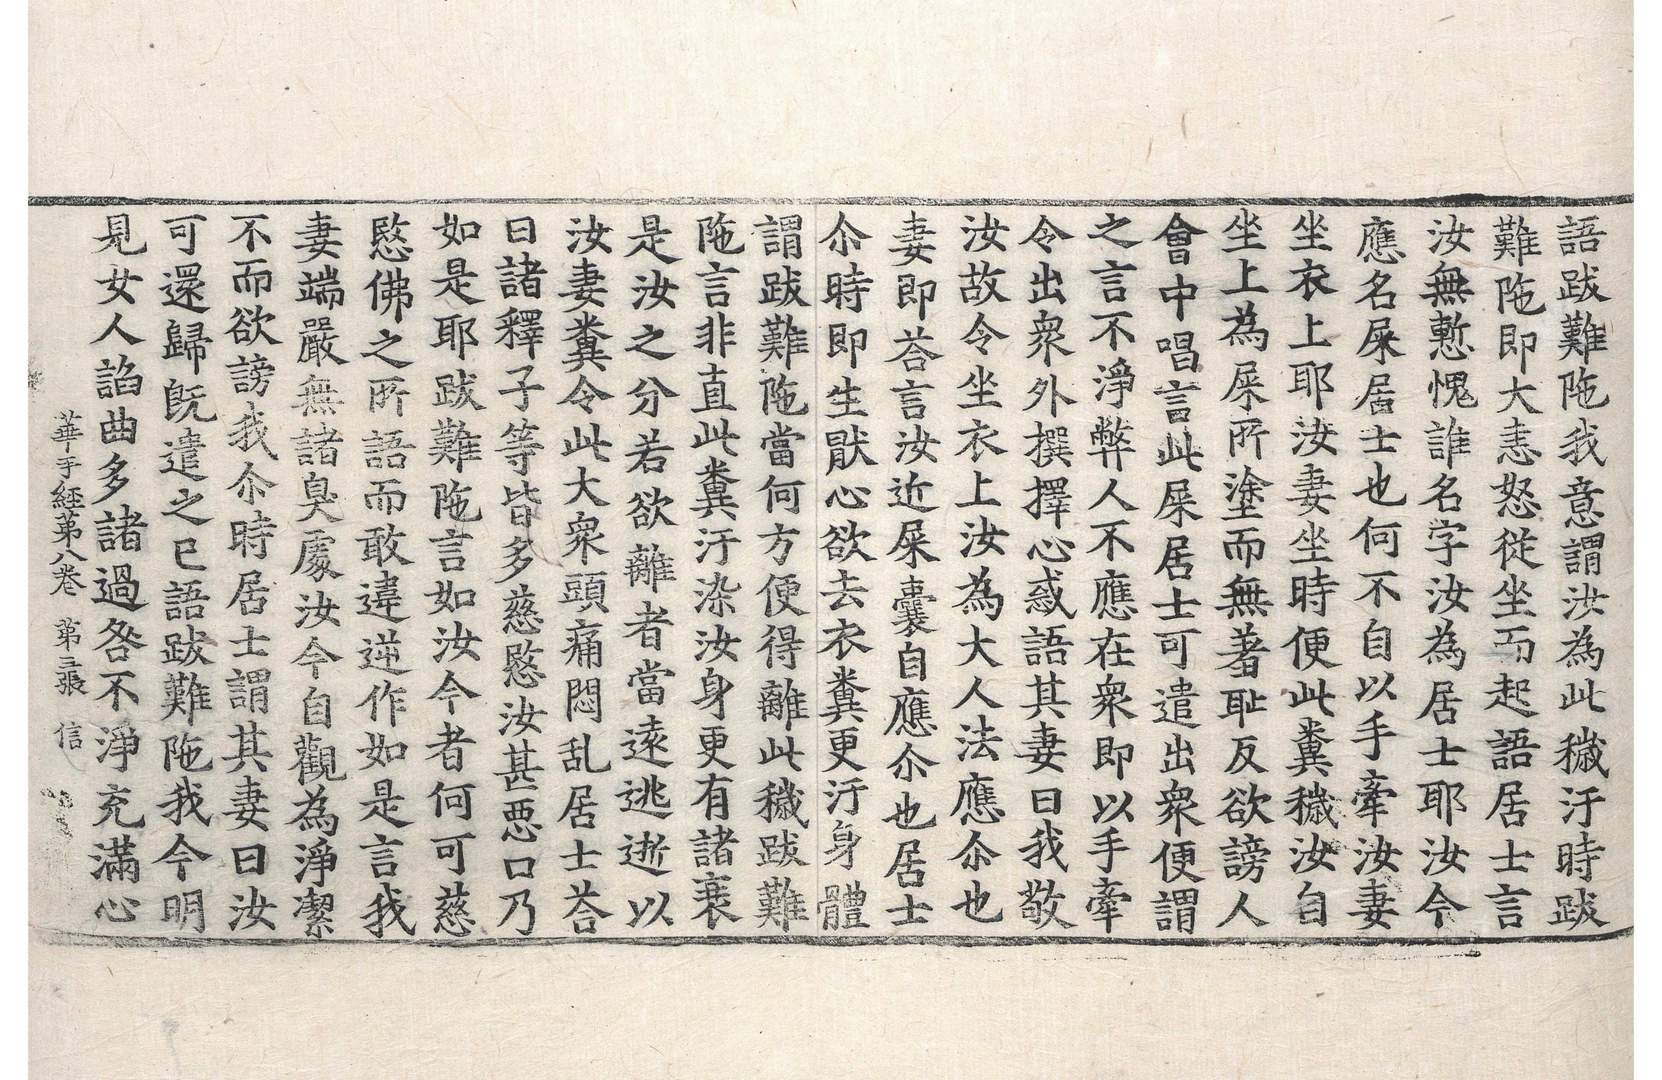 語跋難陁我意謂汝為此穢汙時跋
難陁即大恚怒從坐而起語居士言
汝無慙愧誰名字汝為居士耶汝今
應名屎居士也何不自以手牽汝妻
坐衣上耶汝妻坐時便此糞穢汝自
坐上為屎所塗而無著恥反欲謗人
會中唱言此屎居士可遣出衆便謂
之言不淨弊人不應在衆即以手牽
令出衆外撰擇心惑語其妻曰我敬
汝故令坐衣上汝為大人法應尒也
妻即荅言汝近屎囊自應尒也居士
尒時即生猒心欲去衣糞更汙身體
謂跋難陁當何方便得離此穢跋難
陁言非直此糞汙染汝身更有諸衰
是汝之分若欲離者當遠逃逝以
汝妻糞令此大衆頭痛悶乱居士荅
曰諸釋子等皆多慈愍汝甚惡口乃
如是耶跋難陁言如汝今者何可慈
愍佛之所語而敢違逆作如是言我
妻端嚴無諸臭處汝今自觀為淨潔
不而欲謗我尒時居士謂其妻曰汝
可還歸旣遣之已語跋難陁我今明
見女人諂曲多諸過咎不淨充滿心
華手經苐八卷　苐三張　信